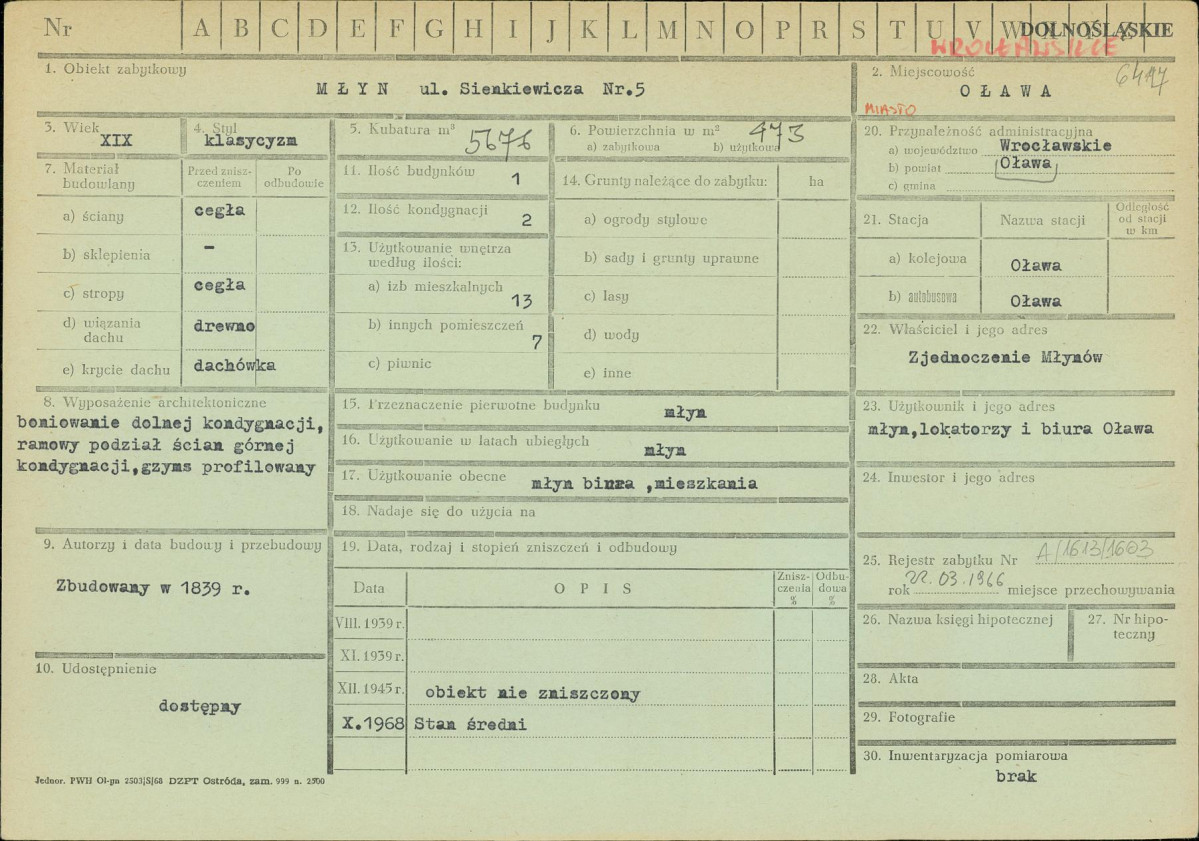 Nr A B C D E F G H I J K L M N O P R S T U V W DOLNOŚLĄSKIE
WROCŁAWSKIE
1. Obiekt zabytkowy
MŁYN ul. Sienkiewicza Nr.5
2. Miejscowość
OŁAWA
MIASTO
3. Wiek
XIX
4. Styl
klasycyzm
5. Kubatura m³
5676
6. Powierzchnia w m² 473
a) zabytkowa b) użytkowa
7. Materiał budowlany
Przed zniszczeniem
Po odbudowie
a) ściany cegła
b) sklepienia –
c) stropy cegła
d) wiązania dachu drewno
e) krycie dachu dachówka
8. Wyposażenie architektoniczne
boniowanie dolnej kondygnacji,
ramowy podział ścian górnej
kondygnacji,gzyms profilowany
9. Autorzy i data budowy i przebudowy
Zbudowany w 1839 r.
10. Udostępnienie
dostępny
11. Ilość budynków 1
12. Ilość kondygnacji 2
13. Użytkowanie wnętrza
według ilości:
a) izb mieszkalnych 13
b) innych pomieszczeń 7
c) piwnic
14. Grunty należące do zabytku: ha
a) ogrody stylowe
b) sady i grunty uprawne
c) lasy
d) wody
e) inne
15. Przeznaczenie pierwotne budynku młyn
16. Użytkowanie w latach ubiegłych młyn
17. Użytkowanie obecne młyn biura ,mieszkania
18. Nadaje się do użycia na
19. Data, rodzaj i stopień zniszczeń i odbudowy
Data OPIS Zniszczenia % Odbudowa %
VIII. 1939 r.
XI. 1939 r.
XII. 1945 r. obiekt nie zniszczony
X.1968 Stan średni
20. Przynależność administracyjna
a) województwo Wrocławskie
b) powiat Oława
c) gmina
21. Stacja Nazwa stacji Odległość od stacji w km
a) kolejowa Oława
b) autobusowa Oława
22. Właściciel i jego adres
Zjednoczenie Młynów
23. Użytkownik i jego adres
młyn,lokatorzy i biura Oława
24. Inwestor i jego adres
25. Rejestr zabytku Nr A/1613/1603
rok 22.03.1966 miejsce przechowywania
26. Nazwa księgi hipotecznej
27. Nr hipoteczny
28. Akta
29. Fotografie
30. Inwentaryzacja pomiarowa
brak
Jednor. PWH Ol-pn 2503|S|68 DZPT Ostróda, zam. 999 n. 2500